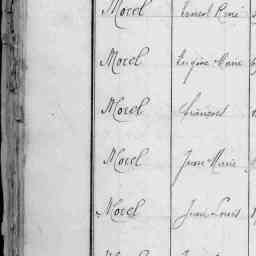 Morel Ernest René
Morel Eugène Marie
Morel François
Morel Jean Marie
Morel Jean Louis